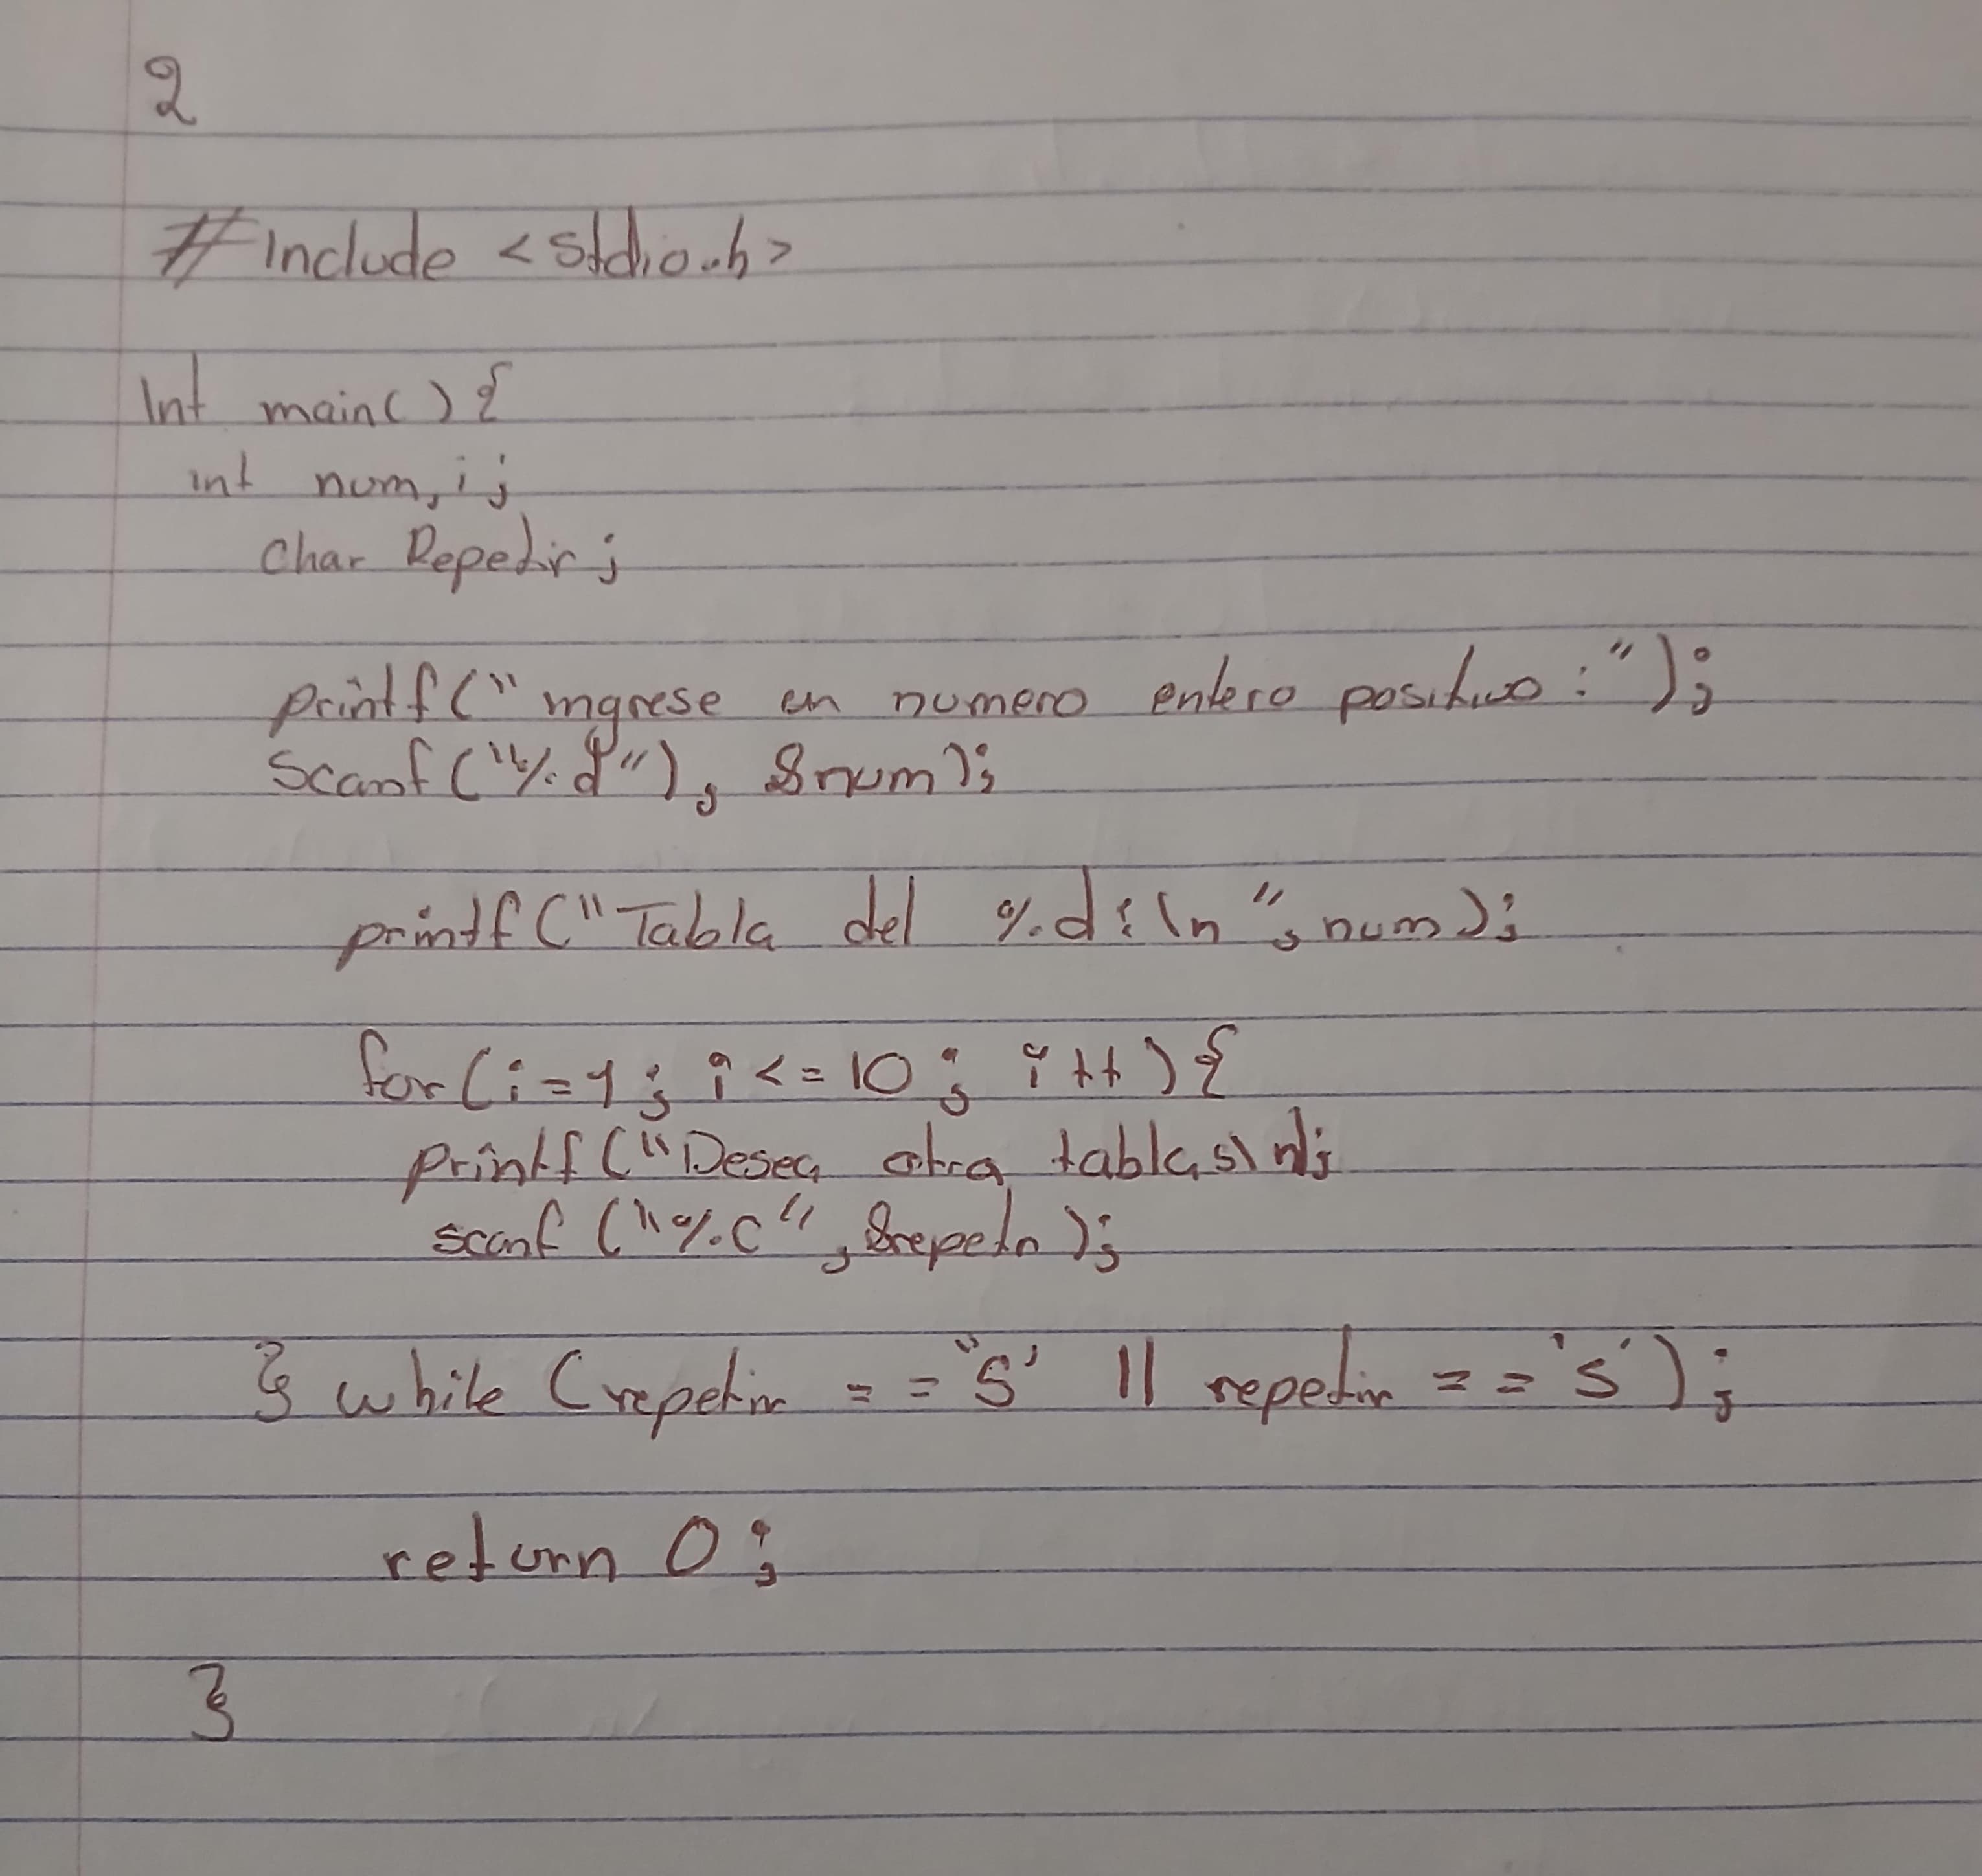 2
#include <stdio.h>
Int main() {
int num, i;
Char Repetir;
printf("ingrese un numero entero positivo:");
Scanf("%d"), &num);
printf("Tabla del %d:\n", num);
for(i=1; i<=10; i++){
printf("Desea otra tabla, s\n);
scanf ("%c", &repetir);
} while (repetir == 'S' || repetir == 's');
return 0;
}